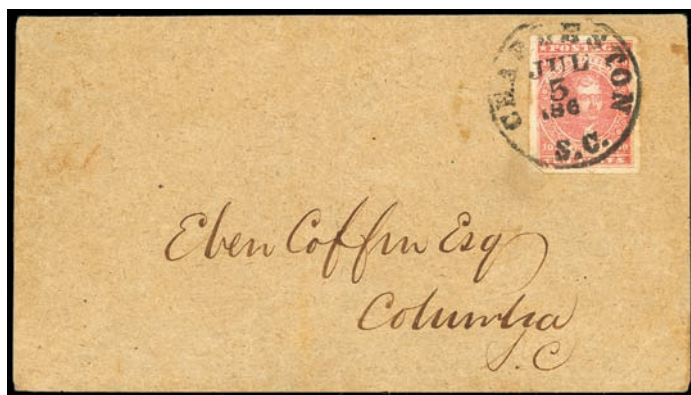 CHARLESTON
JUL
5
186
S.C.
POSTAG
Eben Coffin Esq
Columbia
S.C